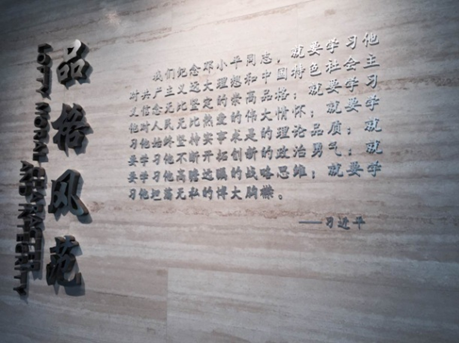 品格风范
我们纪念邓小平同志，就要学习他
对共产主义远大理想和中国特色社会主
义信念无比坚定的崇高品格；就要学习
他对人民无比热爱的伟大情怀；就要学
习他始终坚持实事求是的理论品质；就
要学习他不断开拓创新的政治勇气；就
要学习他高瞻远瞩的战略思维；就要学
习他坦荡无私的博大胸襟。
——习近平